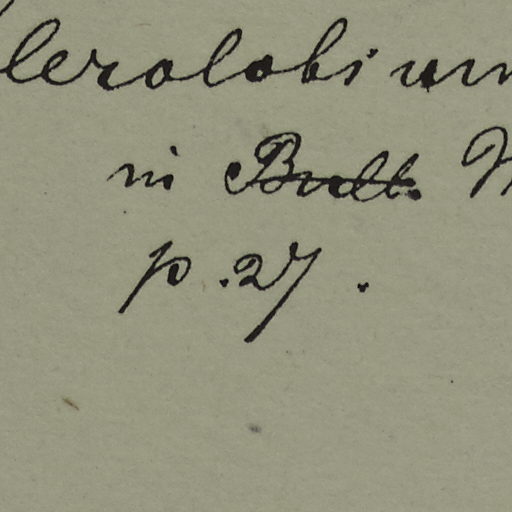 lerolobium
in Bull.
p. 27.